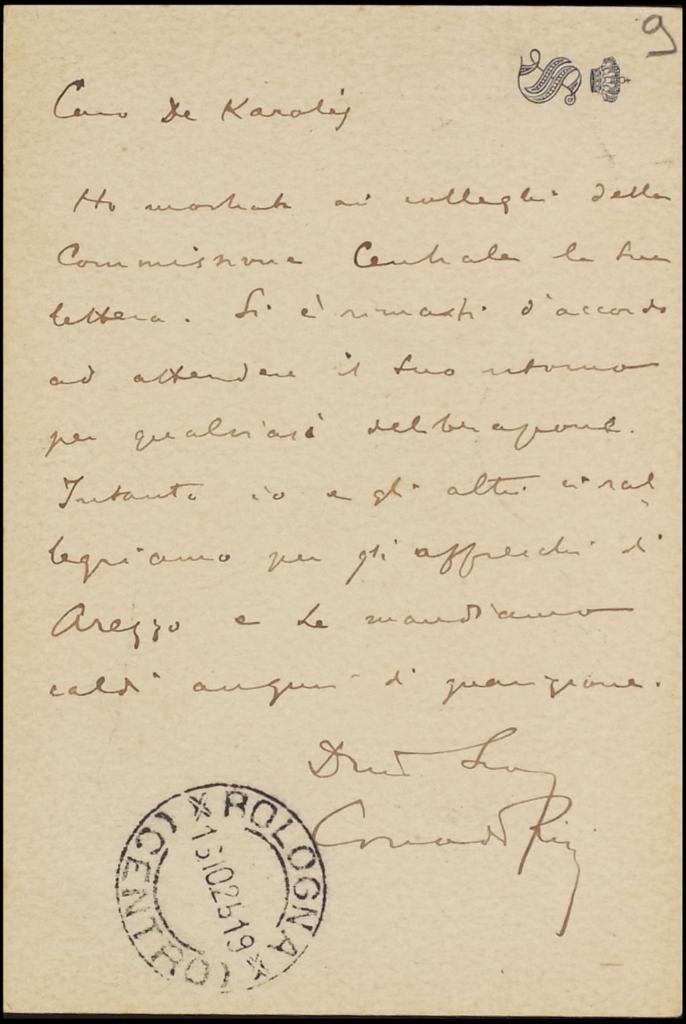 9
S
Caro De Karolis
Ho mostrato ai colleghi della
Commissione Centrale la sua
lettera. Si è rimasti d'accordo
ad attendere il suo ritorno
per qualsiasi deliberazione.
Intanto io e gli altri ci ral
legriamo per gli affreschi di
Arezzo e Le mandiamo
caldi auguri di guarigione.
Corrado Ricci
BOLOGNA
(CENTRO)